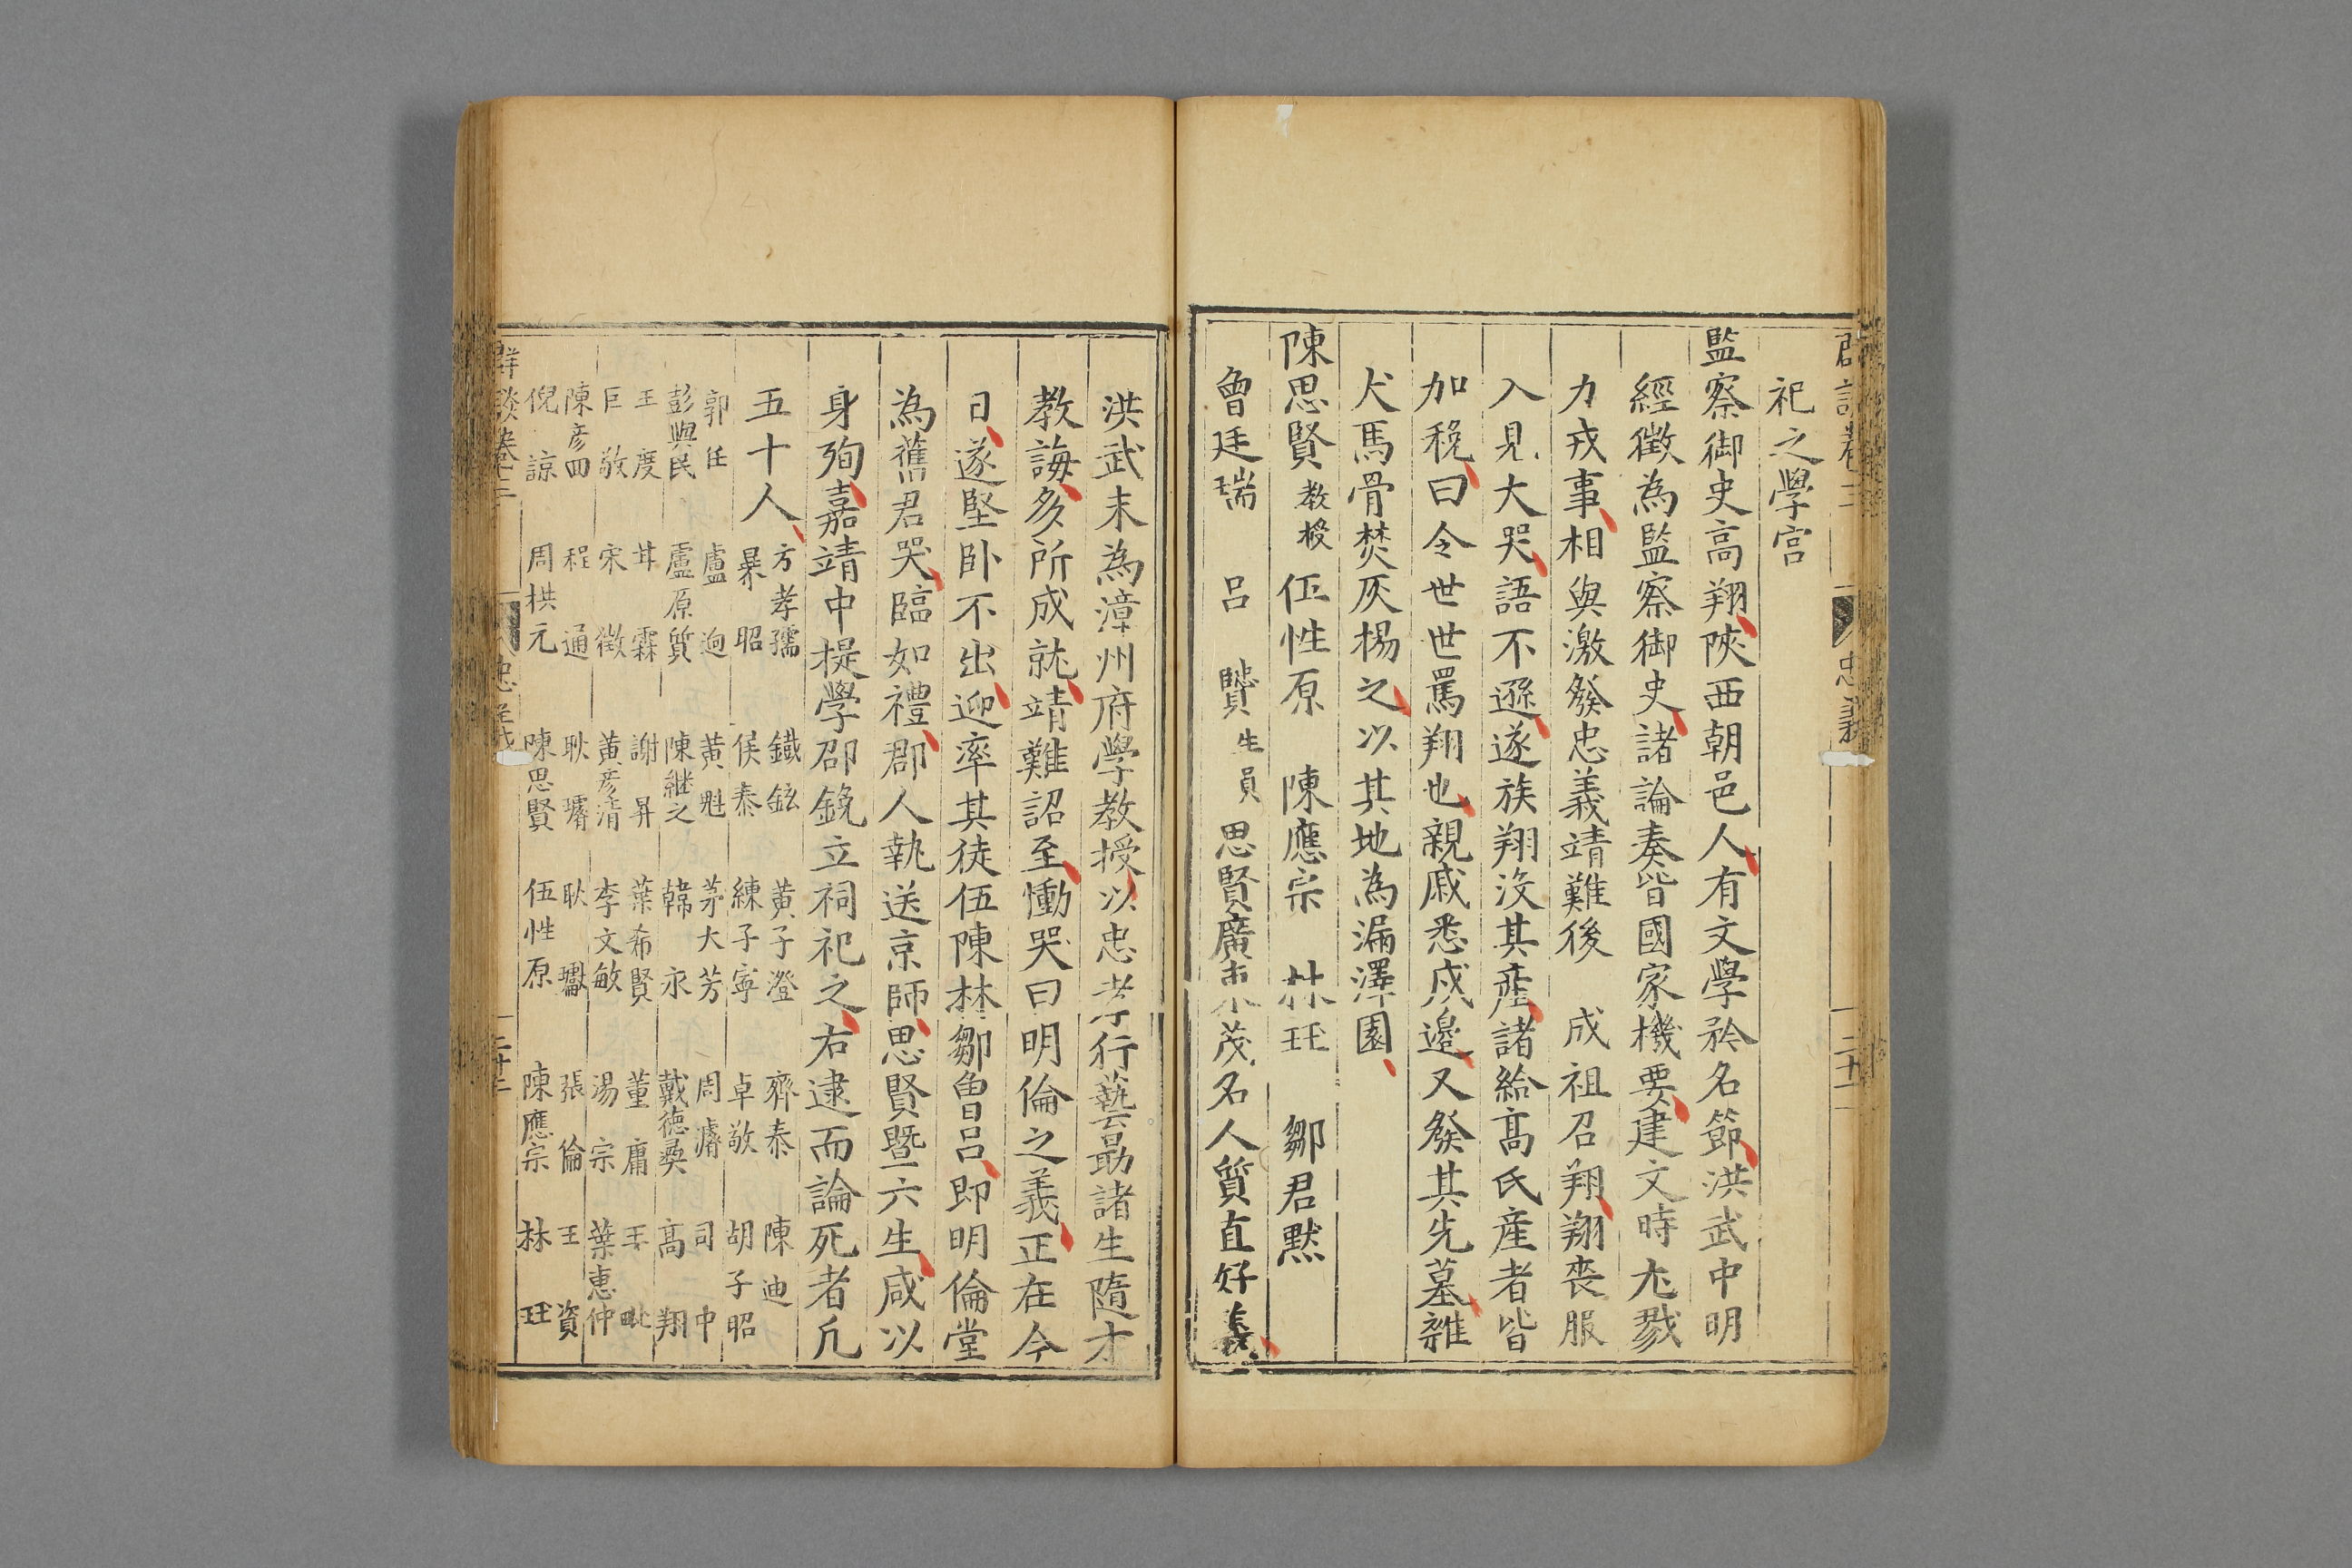 祀之學宮
監察御史高翔陝西朝邑人有文學矜名節洪武中明
經徵為監察御史諸論奏皆國家機要建文時尢戮
力戎事相與激發忠義靖難後 成祖召翔翔喪服
入見大哭語不遜遂族翔沒其產諸給高氏產者皆
加稅曰令世世罵翔也親戚悉戍邊又發其先墓雜
犬馬骨焚灰楊之以其地為漏澤園
陳思賢教授 伍性原 陳應宗 林珏 鄒君默
曾廷瑞 呂賢生員 思賢廣東茂名人質直好義
洪武末為漳州府學教授以忠孝行藝勗諸生隨才
教誨多所成就靖難詔至慟哭曰明倫之義正在今
日遂堅臥不出迎率其徒伍陳林鄒曾呂即明倫堂
為舊君哭臨如禮郡人執送京師思賢暨六生咸以
身殉嘉靖中提學邵銳立祠祀之右逮而論死者凡
五十人 方孝孺 鐵鉉 黃子澄 齊泰 陳迪
暴昭 侯泰 練子寧 卓敬 胡子昭
郭任 盧迥 黃魁 茅大芳 周璿 司中
彭與民 盧原質 陳繼之 韓永 戴德彝 高翔
王度 甘霖 謝昇 葉希賢 董鏞
巨敬 宋徵 黃彥清 李文敏 湯宗 葉惠仲
陳彥回 程通 耿璿 耿瓛 張倫 王資
倪諒 周拱元 陳思賢 伍性原 陳應宗 林珏